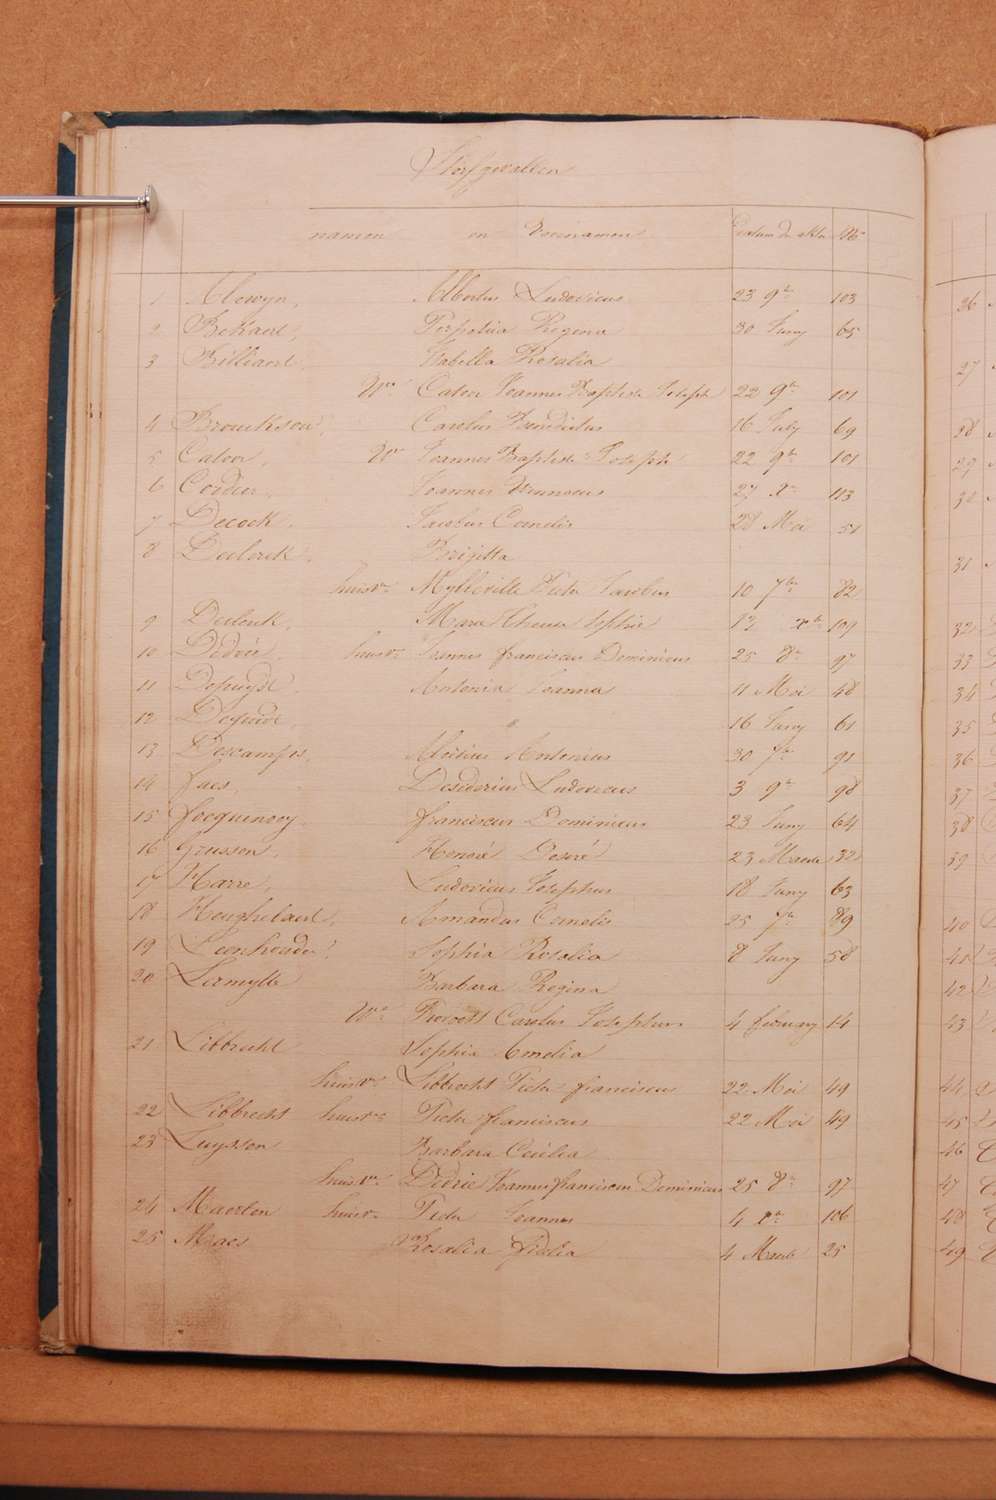 Sterfgevallen
namen en Voornamen Datum der akten N°
1 Alewyn, Albertus Ludovicus 23 9br 103
2 Bekaert, Perpetua Regina 30 Juny 65
3 Billiard Isabella Rosalia
We Catoor Joannes Baptiste Joseph 22 9br 101
4 Carolus Benedictus 16 July 69
5 Catoor, We Joannes Baptiste Joseph 22 9br 101
6 Cordier, Joannes 27 Xbr 113
7 Decock, Jacobus Cornelis 28 Mei 51
8 Declerck, Brigitta
huisvr Pieter Jacobus 10 7br 82
9 Declerck, Maria Theresia Sophie 17 xbr 109
10 Dedrie, huisvr Joannes franciscus Dominicus 25 8br 97
11 Depuydt, Antonia Joanna 11 Mei 48
12 " 16 Juny 61
13 Descamps, Aloisius Antonius 30 7br 91
14 faes, Desiderius Ludovicus 3 9br 98
15 franciscus Dominicus 23 Juny 64
16 Honoré Desiré 23 Maerte 32
17 Harre, Ludovicus Josephus 18 Juny 63
18 Amandus Cornelis 25 7br 89
19 Sophia Rosalia 8 Juny 58
20 Lermytte Barbara Regina
We Carolus Josephus 4 february 14
21 Libbrecht Sophia Amelia
huisvr Libbrecht Pieter franciscus 22 Mei 49
22 Libbrecht huisvr Pieter franciscus 22 Mei 49
23 Luyssen Barbara Cecilia
huisvr Dedrie Joannes franciscus Dominicus 25 8br 97
24 Maerten huisvr Pieter Joannes 4 xbr 106
25 Maes Rosalia fidelia 4 Maerte 25
26
27
28
29
30
31
32
33
34
35
36
37
38
39
40
41
42
43
44
45
46
47
48
49